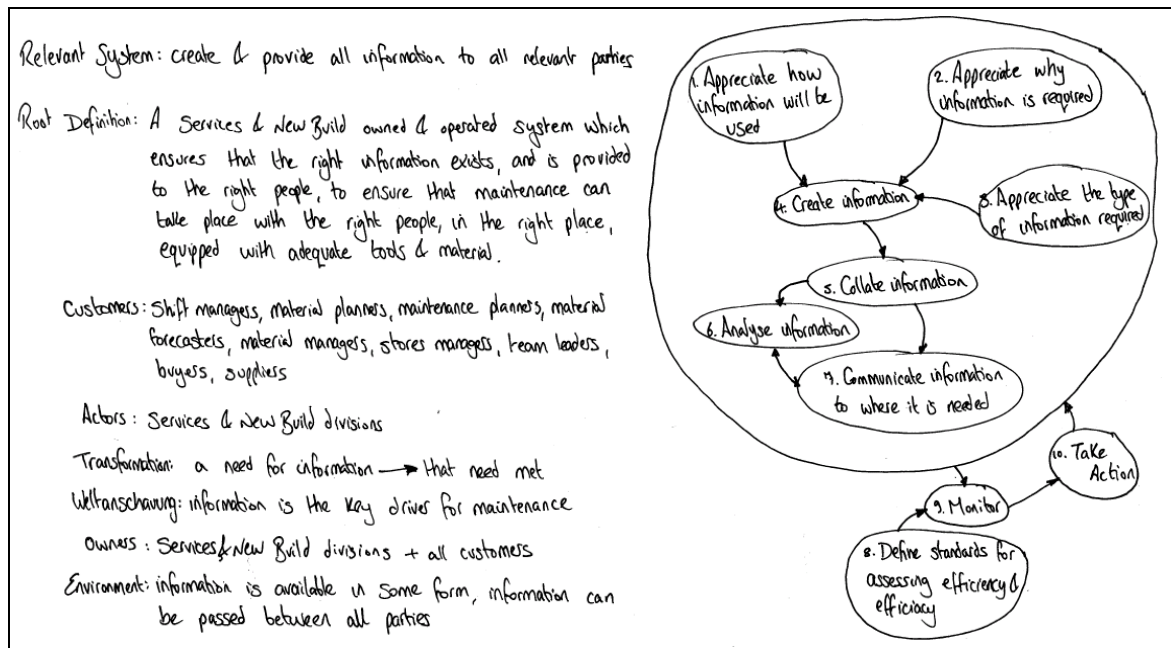 Relevant System: create & provide all information to all relevant parties
Root Definition: A Services & New Build owned & operated system which
ensures that the right information exists, and is provided
to the right people, to ensure that maintenance can
take place with the right people, in the right place,
equipped with adequate tools & material.
Customers: Shift managers, material planners, maintenance planners, material
forecasters, material managers, stores managers, team leaders,
buyers, suppliers
Actors: Services & New Build divisions
Transformation: a need for information → that need met
Weltanschauung: information is the key driver for maintenance
Owners: Services & New Build divisions + all customers
Environment: information is available in some form, information can
be passed between all parties
1. Appreciate how
information will be
used
2. Appreciate why
information is required
3. Appreciate the type
of information required
4. Create information
5. Collate information
6. Analyse information
7. Communicate information
to where it is needed
10. Take
Action
9. Monitor
8. Define standards for
assessing efficiency &
efficiacy